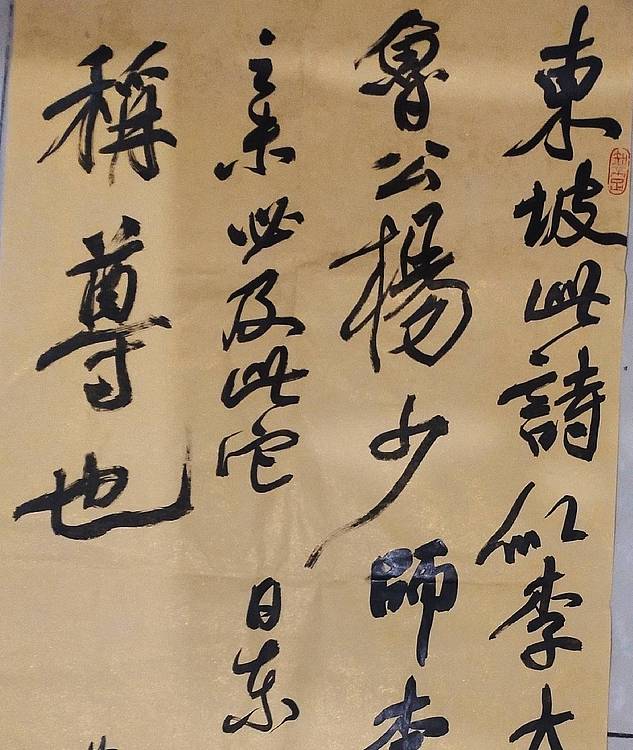 東坡此詩似李太
魯公楊少師李
之未必及此它日東
稱尊也